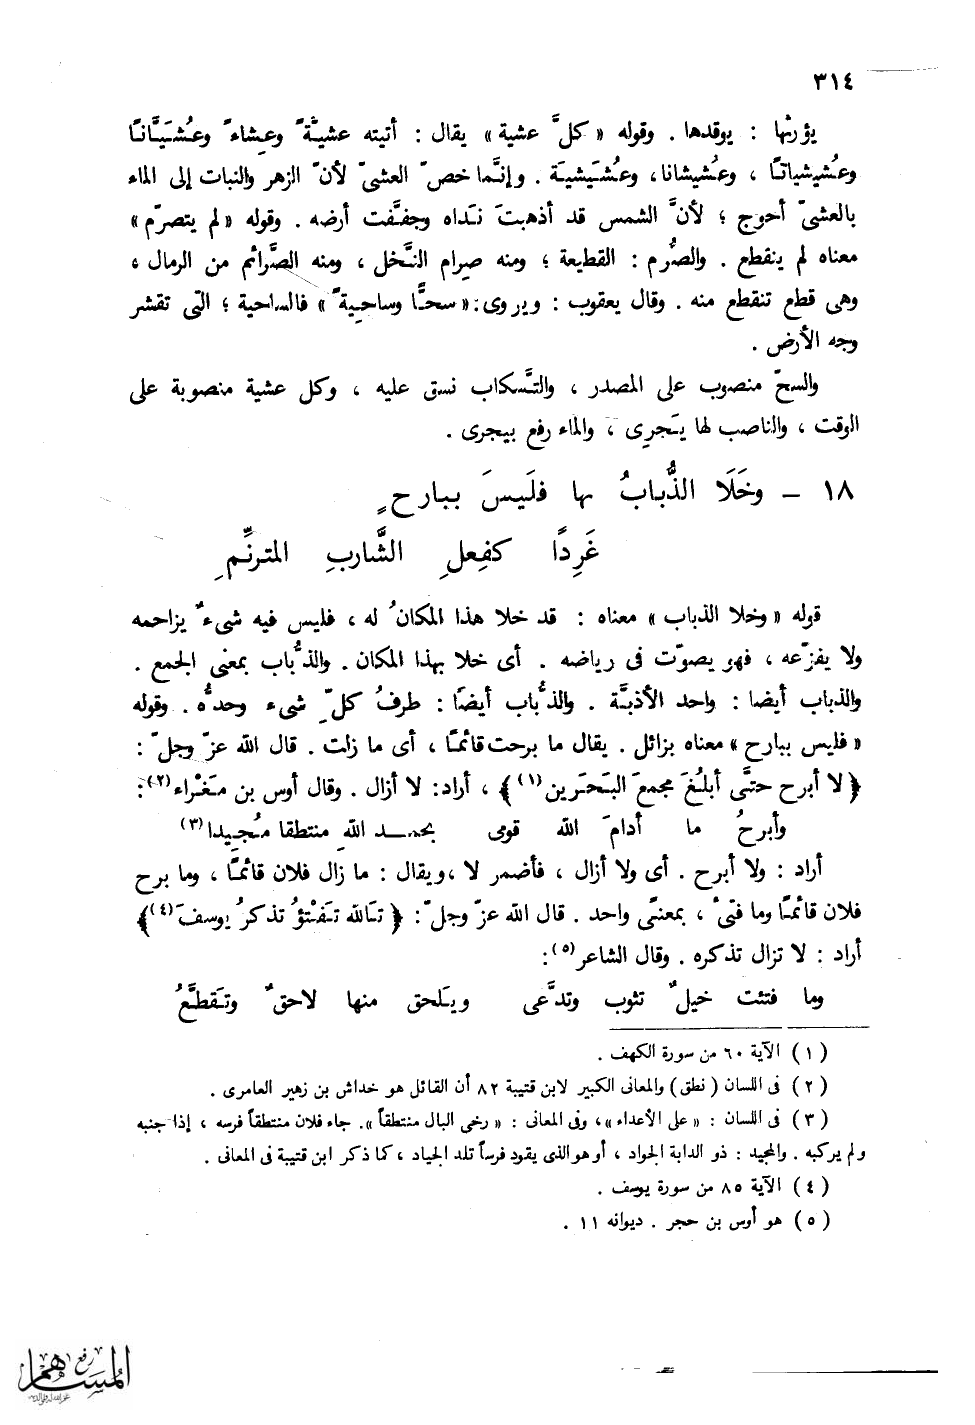 ٣١٤
يؤرثها : يوقدها . وقوله « كلَّ عشية » يقال : أتيته عشيَّةً وعِشاءً وعُشَيَّانًا
وعُشيشياتًا ، وعُشيشانا ، وعُشَيشِيَة . وإنَّما خصّ العشىّ لأنّ الزهر والنبات إلى الماء
بالعشىّ أحوج ؛ لأنَّ الشمس قد أذهبتَ نَداه وجفَّفت أرضه . وقوله « لم يتصرّم »
معناه لم ينقطع . والصُّرم : القطيعة ؛ ومنه صِرام النَّخل ، ومنه الصَّرائم من الرمال ،
وهى قطع تنقطع منه . وقال يعقوب : ويروى : « سحًّا وساحِيةً » فالساحية ؛ التى تقشر
وجه الأرض .
والسحّ منصوب على المصدر ، والتَّسكاب نسق عليه ، وكل عشية منصوبة على
الوقت ، والناصب لها يَجرِى ، والماء رفع بيجرى .
١٨ – وخَلَا الذُّبابُ بها فلَيسَ ببارحٍ
غَرِدًا كفِعلِ الشَّاربِ المترنِّمِ
قوله « وخلا الذباب » معناه : قد خلا هذا المكانُ له ، فليس فيه شىءٌ يزاحمه
ولا يفزّعه ، فهو يصوّت فى رياضه . أى خلا بهذا المكان . والذُّباب بمعنى الجمع .
والذباب أيضا : واحد الأذبَّة . والذُّباب أيضًا : طرفُ كلِّ شىء وحدُّه . وقوله
« فليس ببارح » معناه بزائل . يقال ما برحت قائمًا ، أى ما زلت . قال الله عزّ وجلّ :
﴿ لا أبرح حتَّى أبلُغَ مجمعَ البَحَرين(١) ﴾ ، أراد: لا أزال . وقال أوس بن مَغْراء(٢):
وأبرحُ ما أدامَ الله قومى بحمد اللهِ منتطقا مُجِيدا(٣)
أراد : ولا أبرح . أى ولا أزال ، فأضمر لا ، ويقال : ما زال فلان قائمًا ، وما برح
فلان قائمًا وما فتىْ ، بمعنًى واحد . قال الله عزّ وجلّ : ﴿ تَالله تَفْتؤُ تذكرُ يوسفَ(٤) ﴾
أراد : لا تزال تذكره . وقال الشاعر(٥):
وما فتئت خيلٌ تثوب وتدَّعى ويَلحق منها لاحقٌ وتَقطَّعُ
(١) الآية ٦٠ من سورة الكهف .
(٢) فى اللسان ( نطق) والمعانى الكبير لابن قتيبة ٨٢ أن القائل هو خداش بن زهير العامرى .
(٣) فى اللسان : « على الأعداء »، وفى المعانى : « رخى البال منتطقاً ». جاء فلان منتطقاً فرسه ، إذا جنبه
ولم يركبه . والمجيد : ذو الدابة الجواد ، أو هو الذى يقود فرساً تلد الجياد ، كما ذكر ابن قتيبة فى المعانى .
(٤) الآية ٨٥ من سورة يوسف .
(٥) هو أوس بن حجر . ديوانه ١١ .
رفع
المساهم